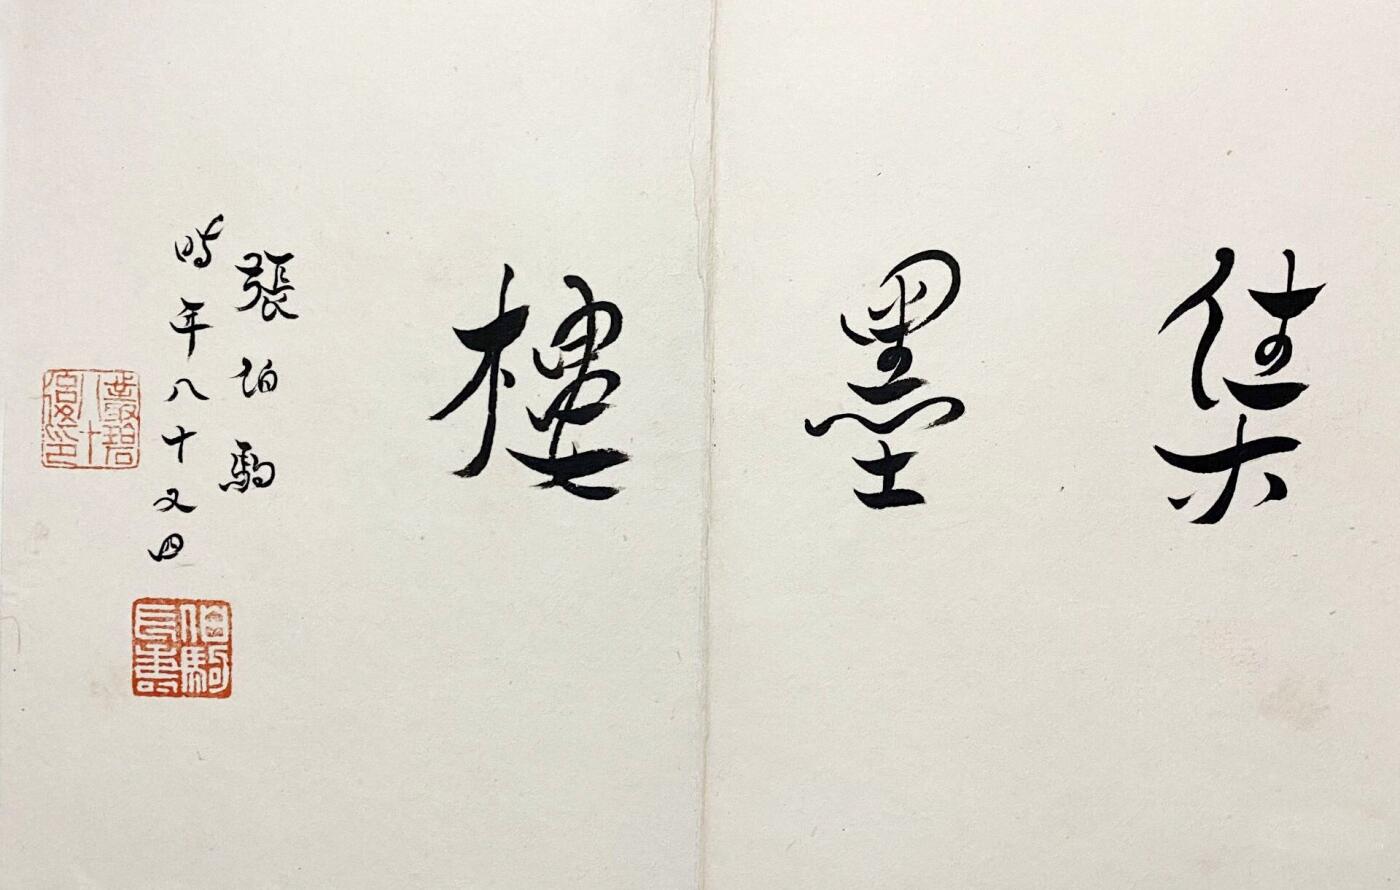 集墨樓
張伯駒
時年八十又四
伯駒長壽